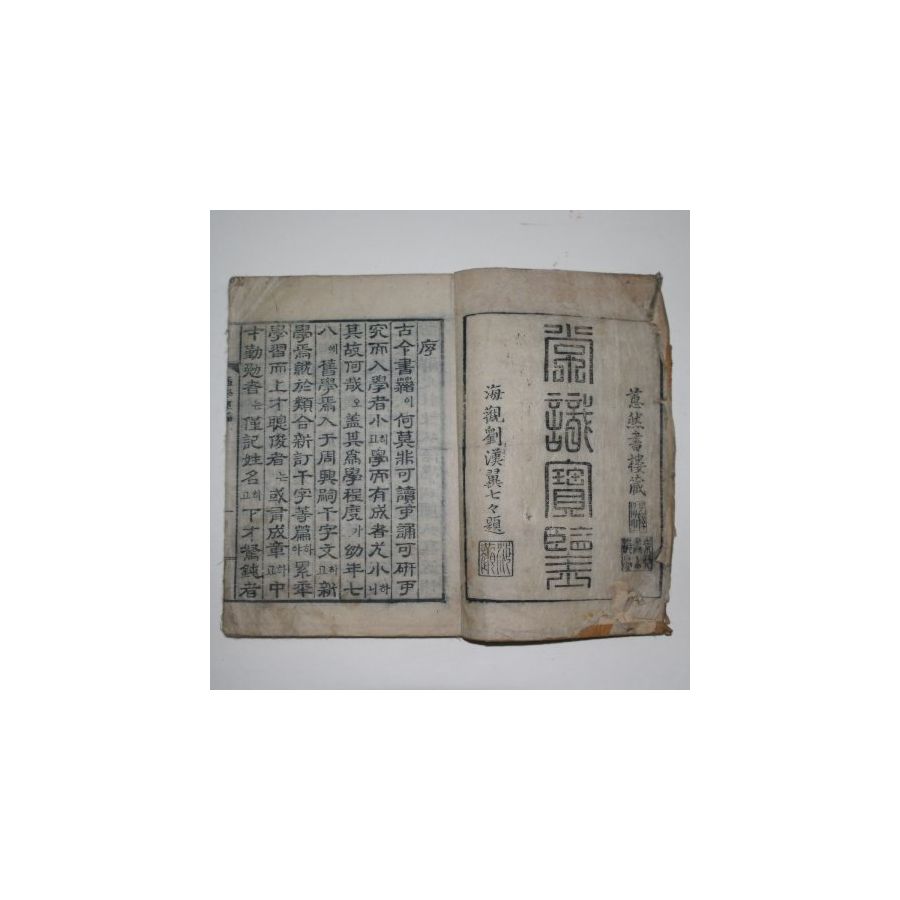 然書樓藏
常識寶鑑
海觀劉漢翼七々題
序
古今書籍이何莫非可讀可誦可研可
究而入學者小하고學而有成者尤小하니
其故何哉오盖其爲學程度가幼年七
八에舊學焉入于周興嗣千字文하고新
學焉就於類合新訂千字等篇하야累年
學習而上才聰俊者는或有成章하고中
才勤勉者는僅記姓名하고下才駑鈍者